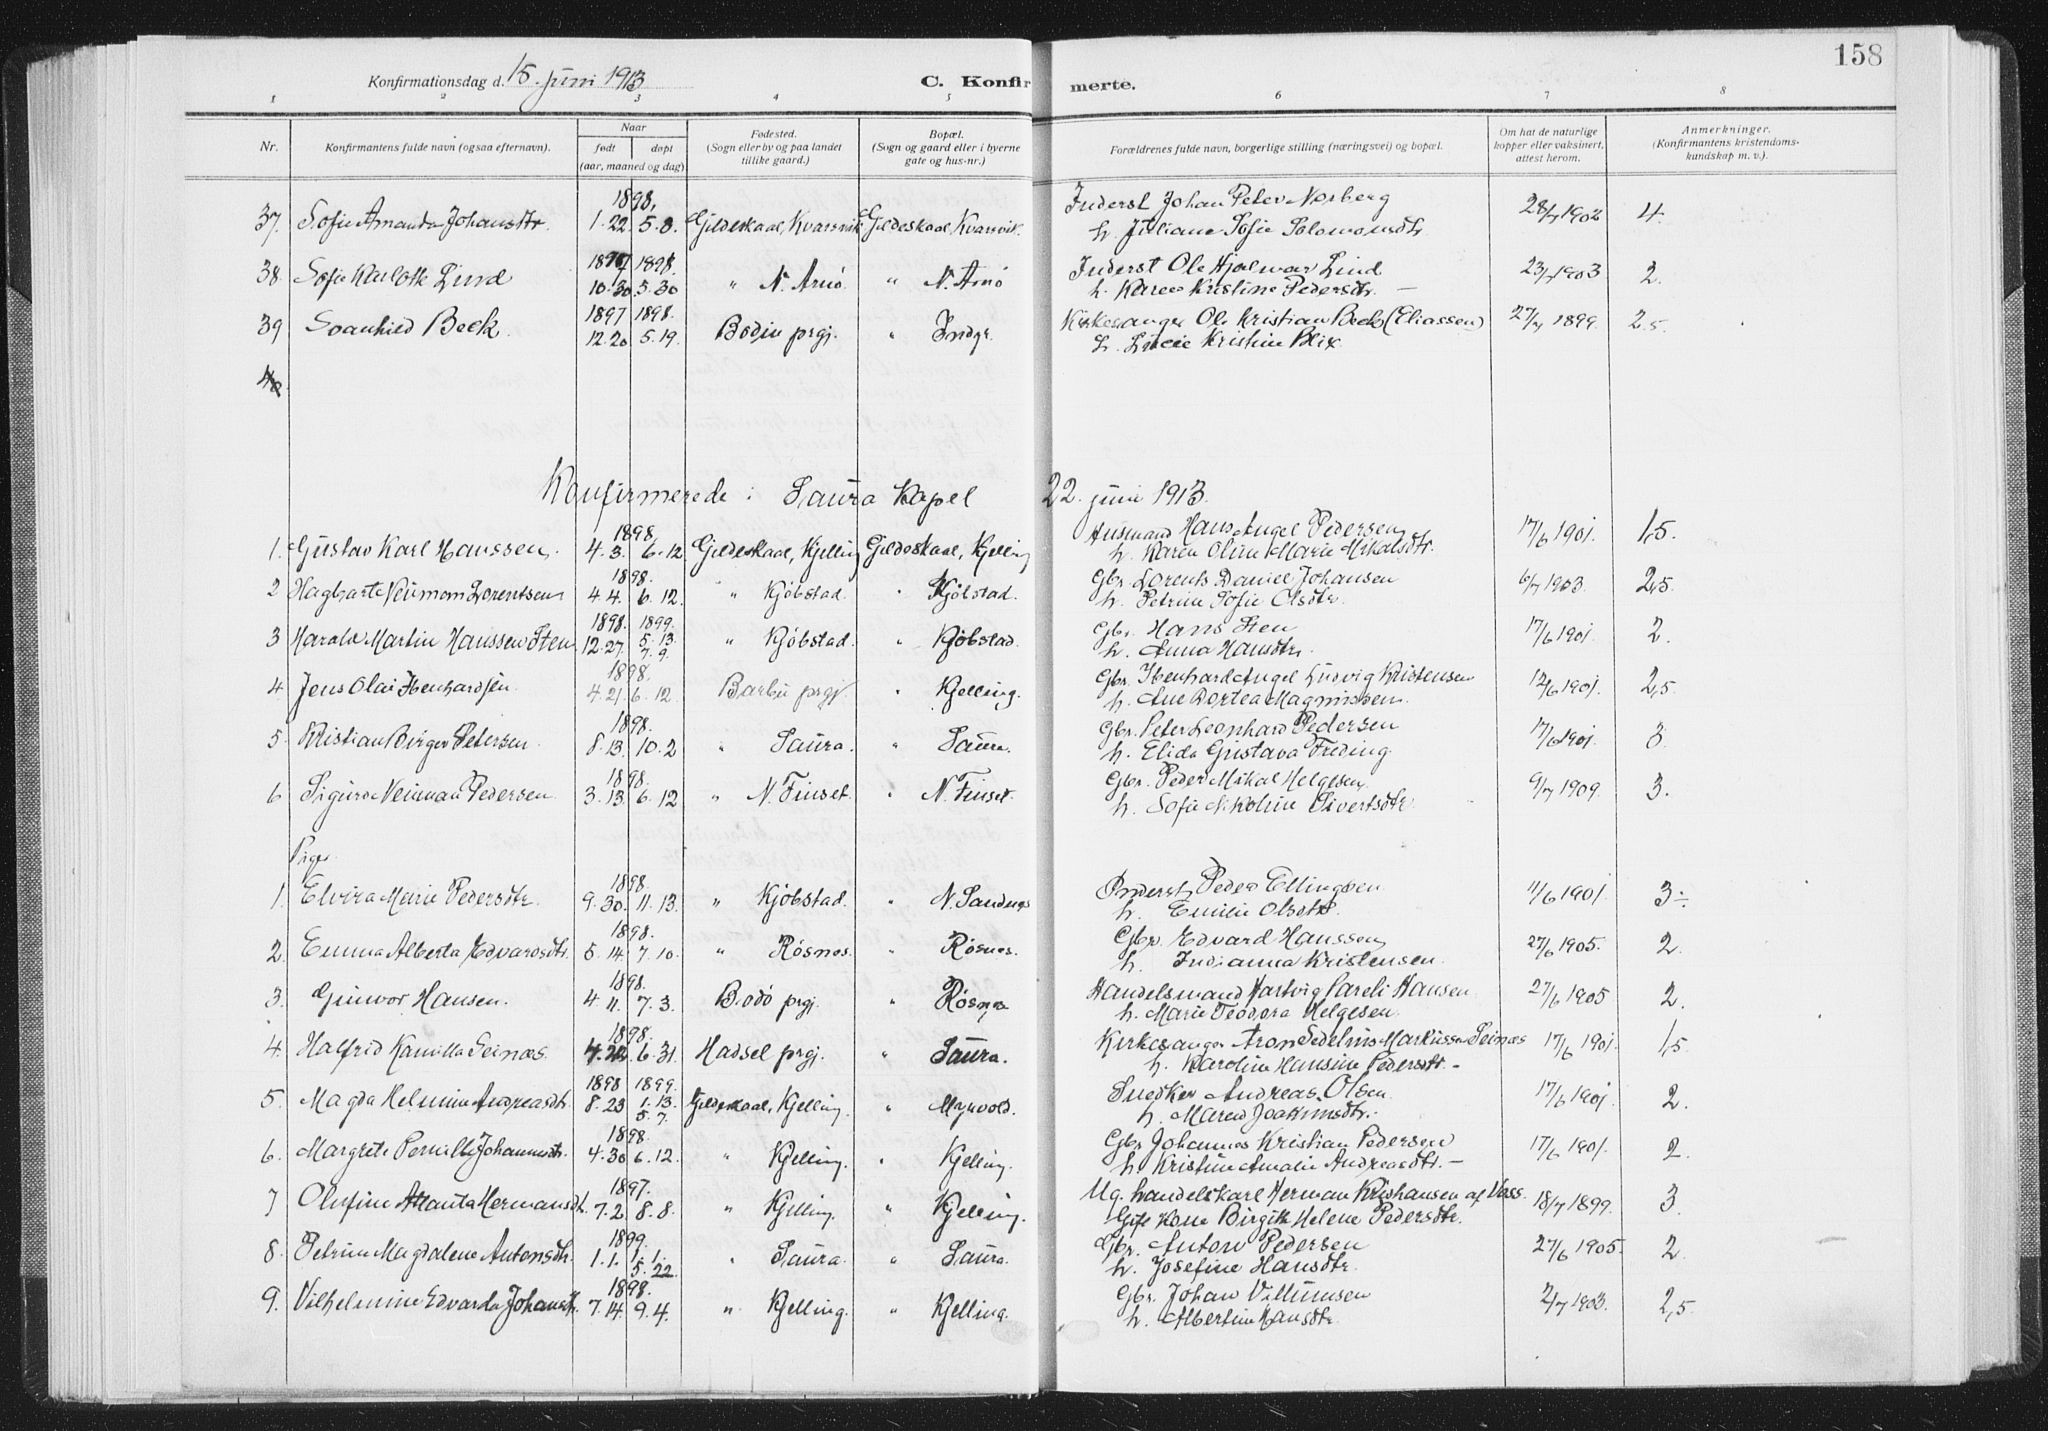 158
Konfirmationsdag d. 15. juni 1913
C. Konfirmerte.
1 2 3 4 5 6 7 8
Nr. Konfirmantens fulde navn (ogsaa efternavn). Naar født døpt (aar, maaned og dag) Fødested. (Sogn eller by og paa landet tillike gaard.) Bopæl. (Sogn og gaard eller i byerne gate og hus-nr.) Forældrenes fulde navn, borgerlige stilling (næringsvei) og bopæl. Om hat de naturlige kopper eller vaksinert, attest herom. Anmerkninger. (Konfirmantens kristendomskundskap m. v.).
1898, Inderst Johan Peter Norberg
37. Sofie Amanda Johansdtr. 1.22 5.8. Gildeskaal, Kvarsvik Gildeskaal, Kvarsvik. h. Juliane Sofie Solomonsdtr 28/7 1902 4.
1897 1898. Inderst Ole Hjalmar Lind
38. Sofie Karlotte Lind 10.30. 5.30 " N. Arnö. " N. Arnö h. Karen Kristine Pedersdtr. — 23/7 1903 2.
1897 1898. Kirkesanger Ole Kristian Beck (Eliassen)
39 Svanhild Beck. 12.20 5.19. Bodin prgj. " Indyr. h. Lucie Kristine Blix. 27/7 1899. 2.5.
40
Konfirmerede i Saura Kapel 22. juni 1913.
1898, Husmand Hans Angel Pedersen
1. Gustav Karl Hanssen. 4.3. 6.12 Gildeskaal, Kjelling Gildeskaal, Kjelling h. Karen Oline Marie Mikalsdtr. 17/6 1901. 1,5.
1898. Gbr. Lorents Daniel Johansen
2 Hagbarte Neumann Lorentsen 4.4. 6.12. " Kjöbstad. " Kjöbstad. h. Petrine Sofie Olsdtr. 6/7 1903. 2,5.
1898. 1899. Gbr. Hans Sten
3 Harald Martin Hanssen Sten 12.27. 5.13 7.9. " Kjöbstad. " Kjöbstad. h. Anna Hansdtr. 17/6 1901. 2.
1898. Gbr. Ibenhard Angel Ludvig Kristensen
4 Jens Olai Ibenhardsen 4.21. 6.12 Barbu prgj. " Kjelling. h. Ane Dortea Magnussen. 12/6 1901. 2,5.
1898. Gbr. Peter Leonhard Pedersen
5. Kristian Birger Petersen. 8.13. 10.2 " Saura. " Saura. h. Elida Gustava Freding. 17/6 1901. 3.
1898. Gbr. Peder Mikal Helgesen
6 Sigurd Neuman Pedersen 3.13. 6.12 " N. Finset. " N. Finset. h. Sofie Nikoline Sivertsdtr 9/7 1909. 3.
Piger.
1898. Inderst Peder Ellingsen
1. Elvira Marie Pedersdtr. 9.30. 11.13. " Kjöbstad. " N. Sandnes h. Emilie Olsdtr. 11/6 1901. 3÷
1898. Gbr. Edvard Hanssen
2. Emma Alberta Edvardsdtr. 5.14. 7.10. " Rösnes. " Rösnes. h. Indianna Kristensen. 27/6 1905. 2.
1898. Handelsmand Hartvig Sareli Hansen
3. Gunvor Hansen. 4.11. 7.3. Bodö prgj. " Rösnes h. Marie Teodora Helgesen. 27/6 1905 2.
1898. Kirkesanger Aron Sedelius Markussen Seinæs
4. Halfrid Kamilla Seinæs. 4.22. 6.31. Hadsel prgj. " Saura. h. Karoline Hansine Pedersdtr. - 17/6 1901. 1,5
1898 1899. Snedker Andreas Olsen
5. Magda Helmine Andreasdtr. 8.23 1.13. 5.7. Gildeskaal, Kjelling. " Myrvold. h. Maren Joakimsdtr. 17/6 1901. 2.
1898. Gbr. Johannes Kristian Pedersen
6. Margrete Pernille Johannesdtr. 4.30 6.12. " Kjelling. " Kjelling. h. Kristine Amalie Andreasdtr. — 17/6 1901. 2.
1897. Ug. handelskarl Herman Kristiansen af Vass.
7 Olufine Atlanta Hermansdtr. 7.2. 8.8. " Kjelling. " Kjelling. Gift Kone Birgitte Helene Pedersdtr. 18/7 1899. 3.
1899. Gbr. Anton Pedersen
8. Petrine Magdalene Antonsdtr. 1.1. 1.1. 5.22. " Saura. " Saura. h. Josefine Hansdtr. 27/6 1905. 2.
1898. Gbr. Johan Villumsen
9. Vilhelmine Edvarda Johansdtr. 7.14. 9.4. " Kjelling. " Kjelling. h. Albertine Hansdtr. 2/7 1903. 2,5.